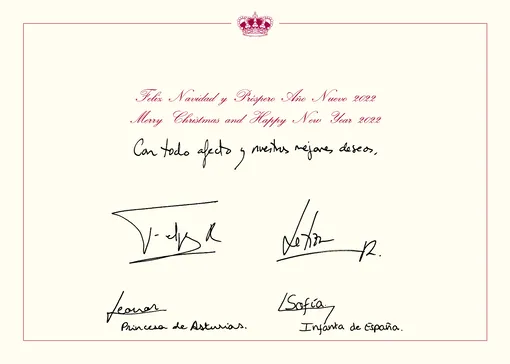 Feliz Navidad y Próspero Año Nuevo 2022
Merry Christmas and Happy New Year 2022
Con todo afecto y nuestros mejores deseos,
Felipe R
Letizia R.
Leonor
Princesa de Asturias.
Sofía
Infanta de España.